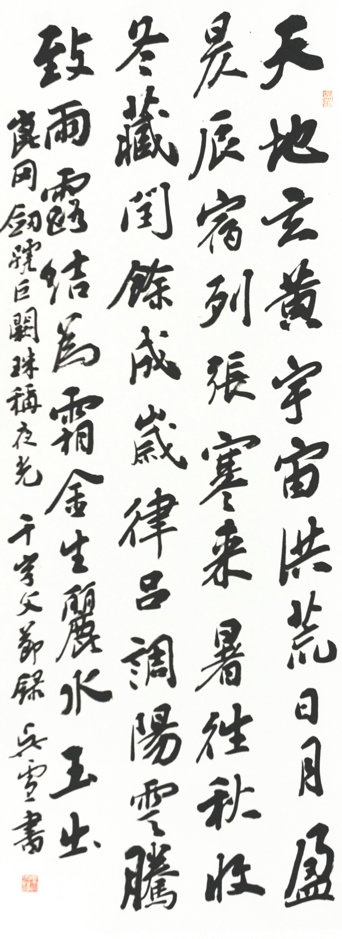 天地玄黃宇宙洪荒日月盈
昃辰宿列張寒来暑往秋收
冬藏閏餘成歲律呂調陽雲騰
致雨露結為霜金生麗水玉出
崑岡劍號巨闕珠稱夜光 千字文節錄 書